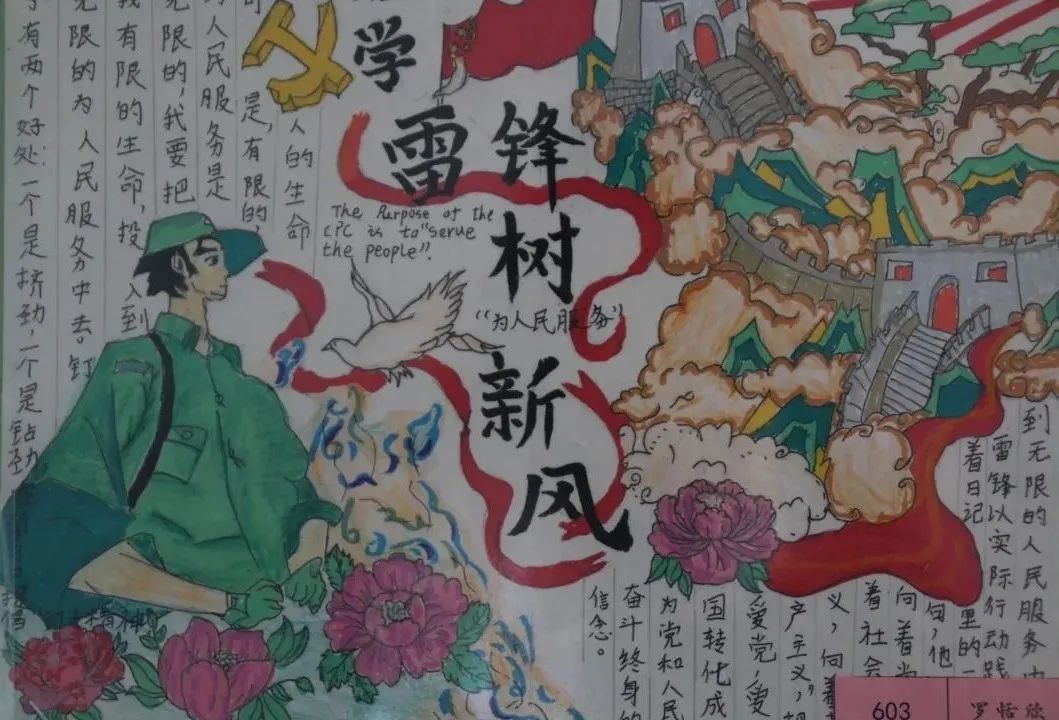 学
雷锋
树
新
风
The Purpose of the
CPC is to "serve
the people".
“为人民服务”
人的生命
是,有限的,
的人民服务是
无限的,我要把
我有限的生命,投入到
无限的为人民服务中去。钉
有两个好处:一个是挤劲,一个是钻劲
到无限的人民服务中
雷锋以实际行动践
着日记里的一
句,他
向着
着社会
义,向着
产主义,
爱党,爱
国转化成
为党和人民
奋斗终身的
信念。
603